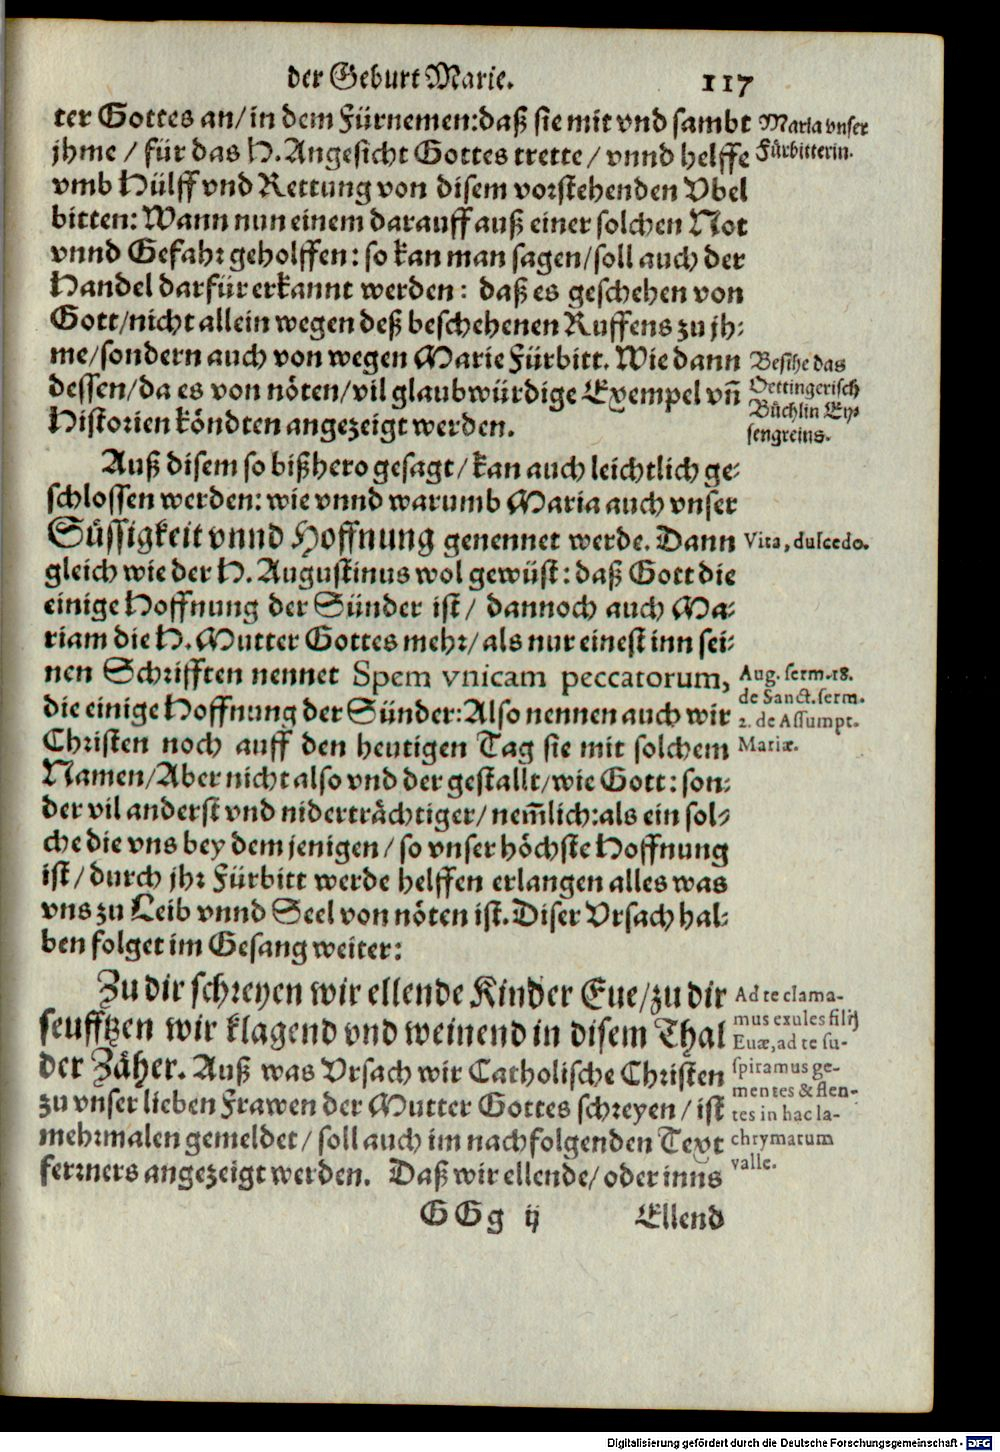 der Geburt Marie. 117
ter Gottes an/in dem Fürnemen:daß sie mit vnd sambt
jhme / für das H. Angesicht Gottes trette / vnnd helffe
vmb Hülff vnd Rettung von disem vorstehenden Vbel
bitten: Wann nun einem darauff auß einer solchen Not
vnnd Gefahr geholffen: so kan man sagen/soll auch der
Handel darfür erkannt werden: daß es geschehen von
Gott/nicht allein wegen deß beschehenen Ruffens zu jh⸗
me/sondern auch von wegen Marie Fürbitt. Wie dann
dessen/da es von nöten/vil glaubwürdige Exempel vñ
Historien köndten angezeigt werden.
Maria vnser
Fürbitterin.
Besihe das
Oettingerisch
Büchlin Ey⸗
sengreins.
Auß disem so bißhero gesagt/kan auch leichtlich ge⸗
schlossen werden: wie vnnd warumb Maria auch vnser
Süssigkeit vnnd Hoffnung genennet werde. Dann
gleich wie der H. Augustinus wol gewüst: daß Gott die
einige Hoffnung der Sünder ist/ dannoch auch Ma⸗
riam die H. Mutter Gottes mehr/als nur einest inn sei⸗
nen Schrifften nennet Spem vnicam peccatorum,
die einige Hoffnung der Sünder:Also nennen auch wir
Christen noch auff den heutigen Tag sie mit solchem
Namen/Aber nicht also vnd der gestallt/wie Gott: son⸗
der vil anderst vnd niderträchtiger/ nem̃lich:als ein sol⸗
che die vns bey dem jenigen/so vnser höchste Hoffnung
ist/durch jhr Fürbitt werde helffen erlangen alles was
vns zu Leib vnnd Seel von nöten ist. Diser Vrsach hal⸗
ben folget im Gesang weiter:
Vita, dulcedo.
Aug. serm. 18.
de Sanct. serm.
2. de Assumpt.
Mariæ.
Zu dir schreyen wir ellende Kinder Eue/zu dir
seufftzen wir klagend vnd weinend in disem Thal
der Zäher. Auß was Vrsach wir Catholische Christen
zu vnser lieben Frawen der Mutter Gottes schreyen/ ist
mehrmalen gemeldet/soll auch im nachfolgenden Text
ferrners angezeigt werden. Daß wir ellende/oder inns
Ad te clama-
mus exules filij
Euæ, ad te su-
spiramus ge-
mentes & flen-
tes in hac la-
chrymarum
valle.
GGg ij Ellend
Digitalisierung gefördert durch die Deutsche Forschungsgemeinschaft - DFG